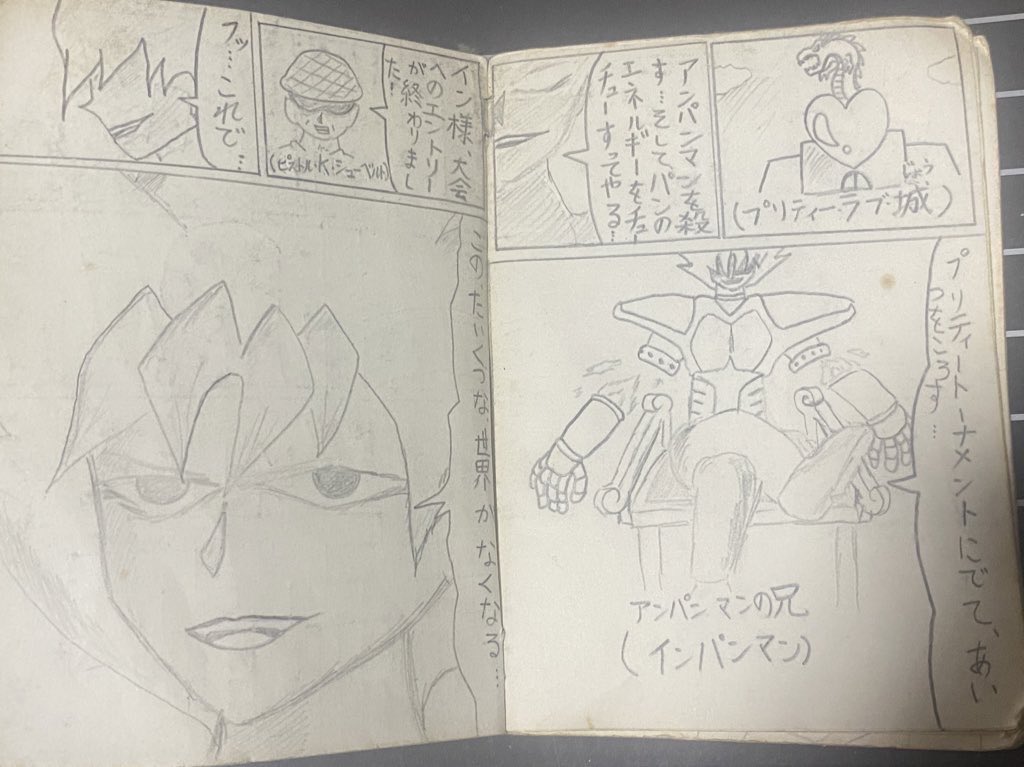 (プリティー・ラブ・城)
じょう
アンパンマンを殺
す…そして、パンの
エネルギーをチュー
チューすってやる…
プリティートーナメントにでて、あい
つをころす…
アンパンマンの兄
(インパンマン)
イン様、大会
へのエントリー
が終わりまし
た!
(ピストル・K・シューベルト)
フッ…これで…
この、たいくつな、世界がなくなる…